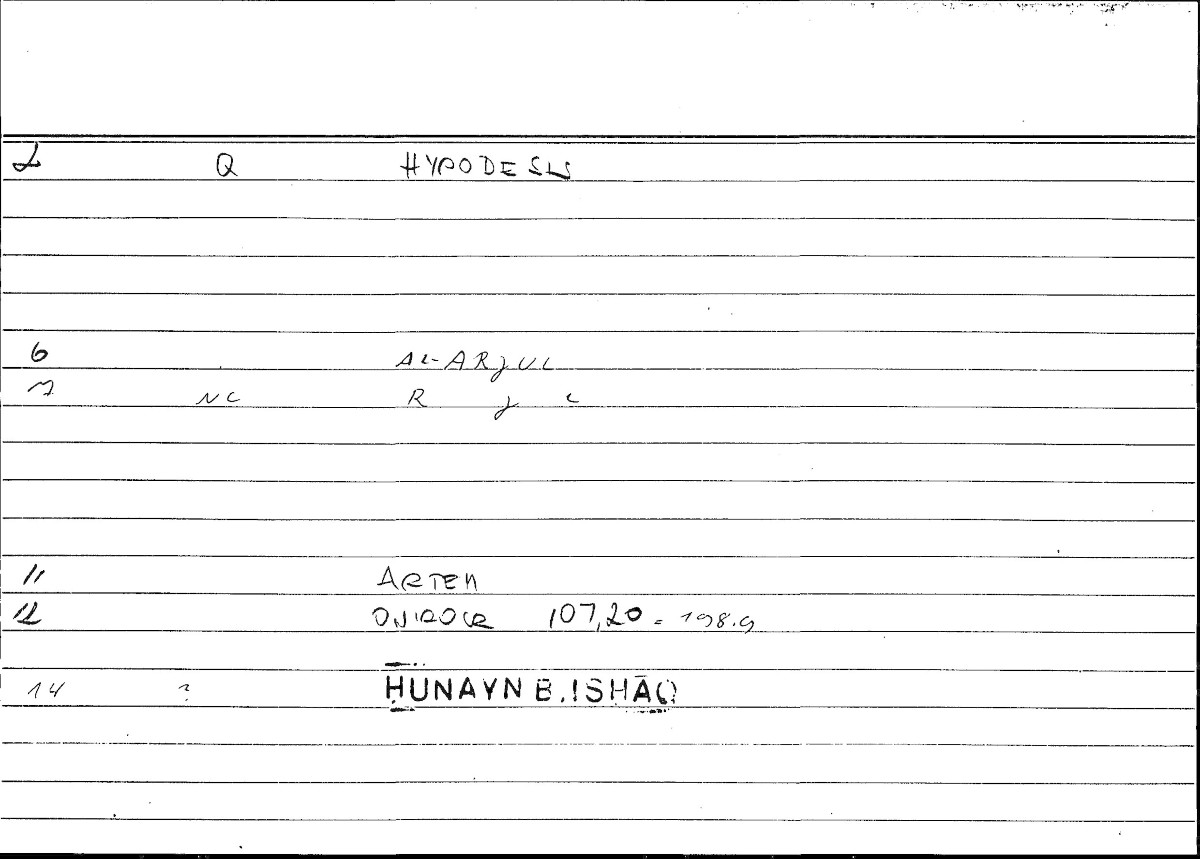 2 Q HYPODESIS
6 AL-ARJUL
7 NC R J L
11 ARTEM
12 ONIROCR 107,20 = 198.9
14 ? ḤUNAYN B. ISḤĀQ